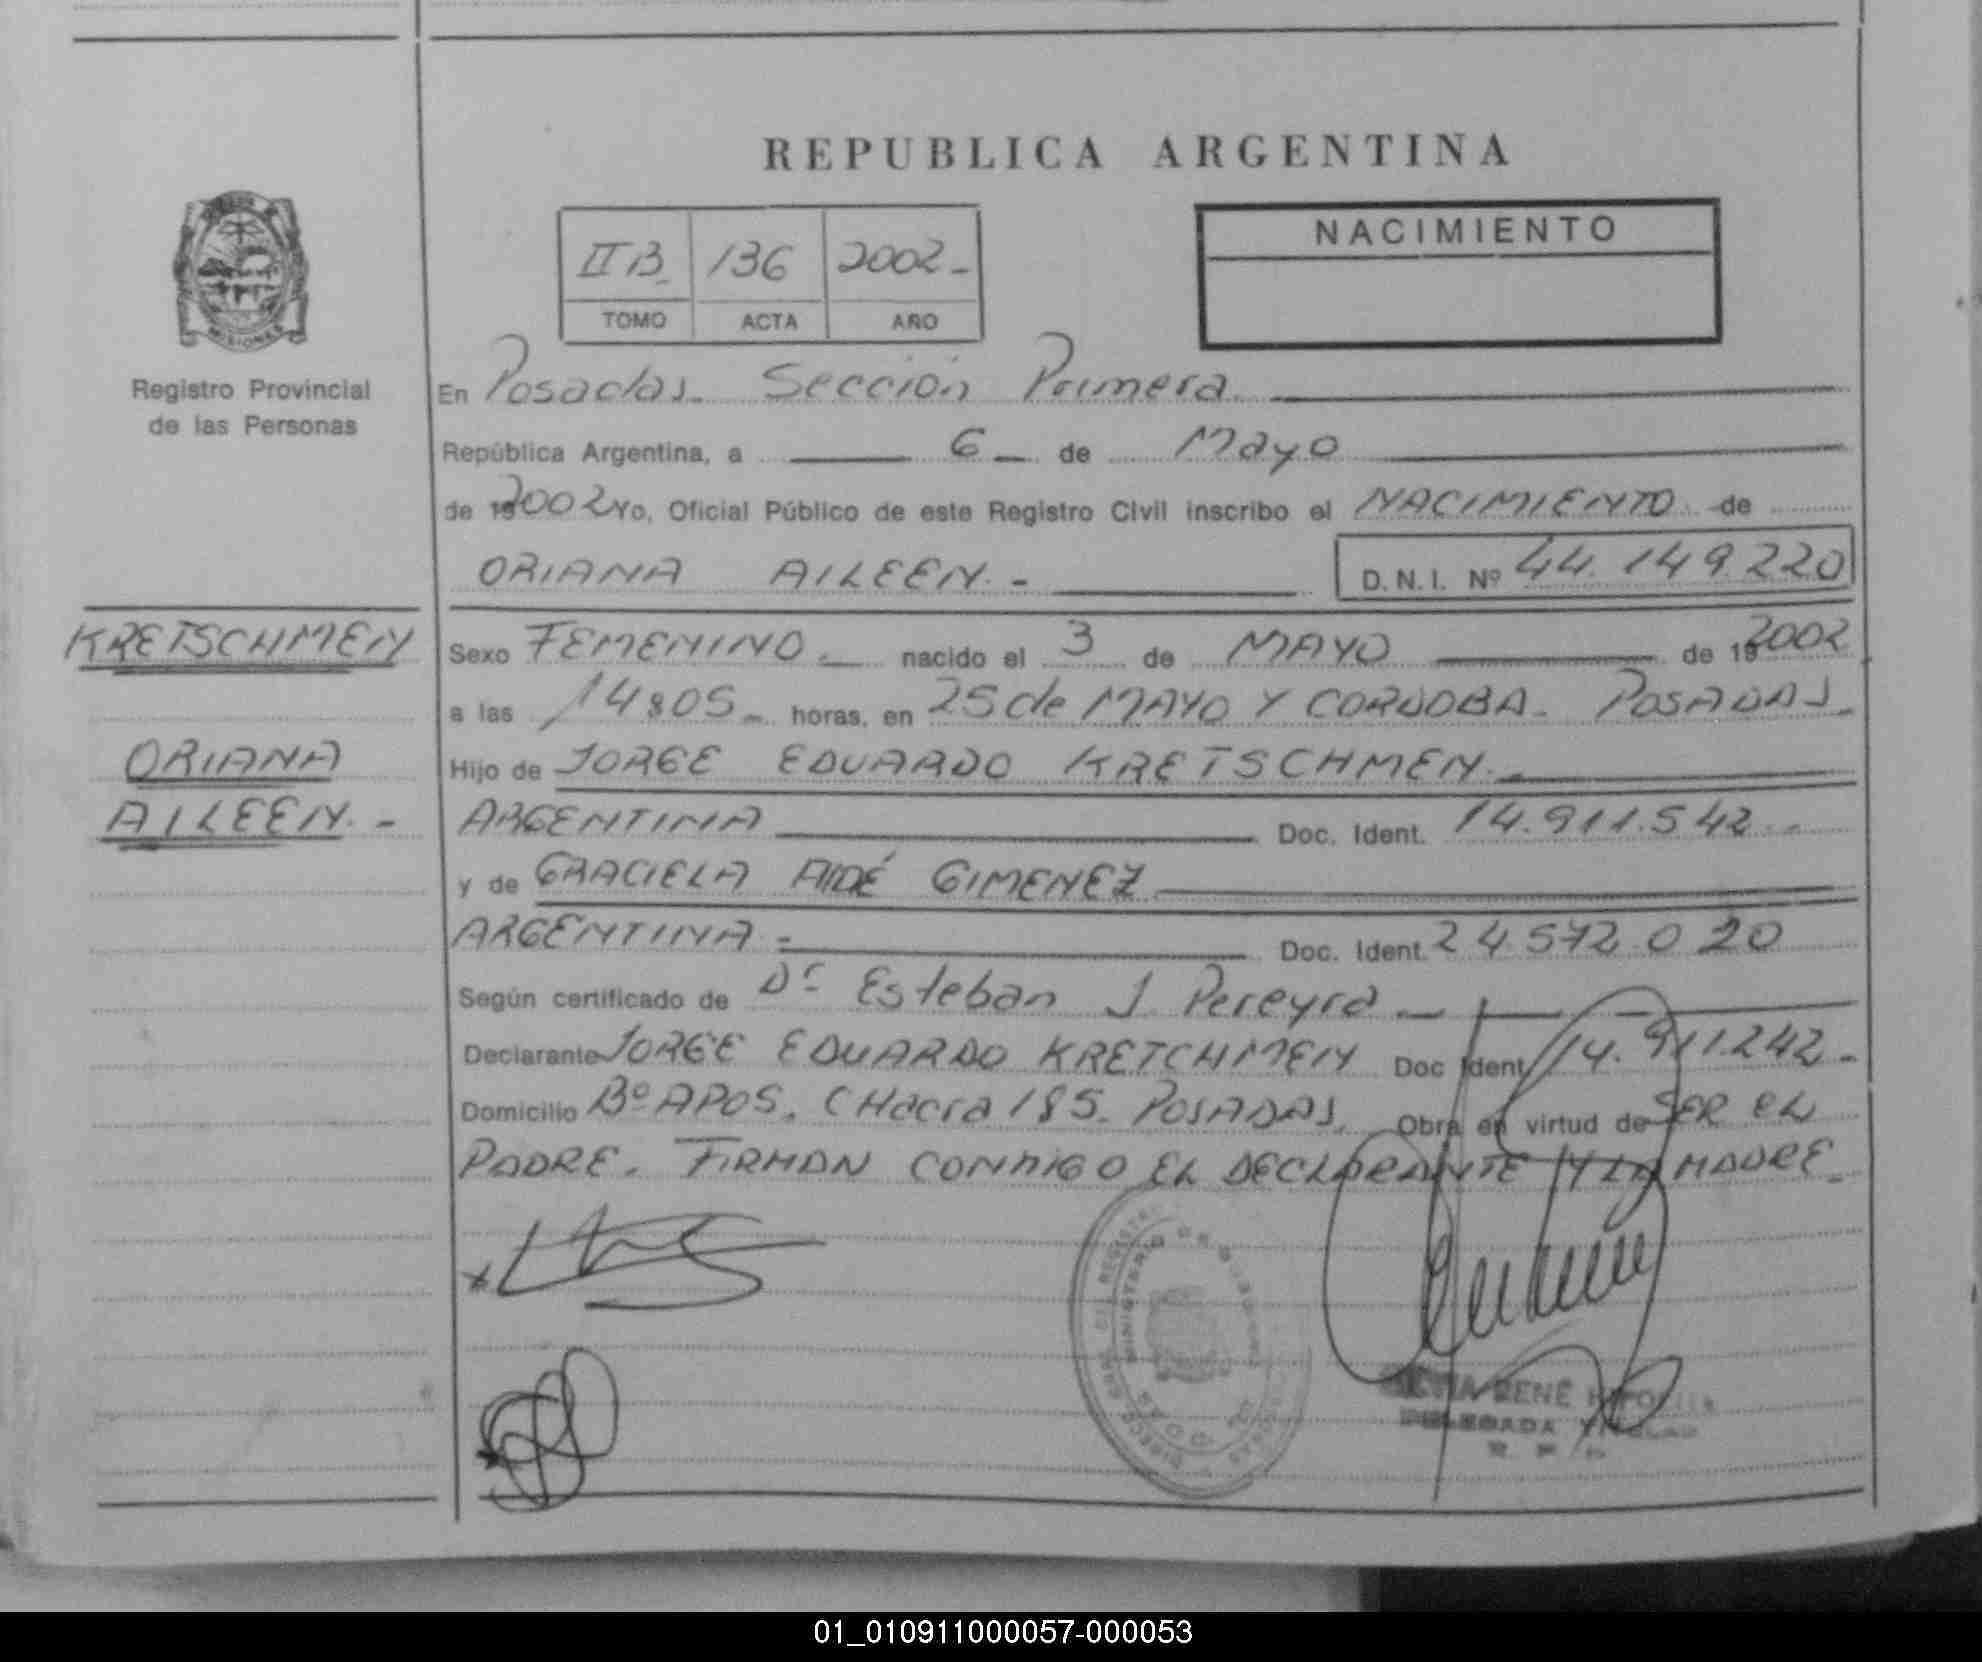 REPUBLICA ARGENTINA
NACIMIENTO
II B 136 2002-
TOMO ACTA AÑO
MISIONES
Registro Provincial
de las Personas
En Posadas. Sección Primera
República Argentina, a 6 de Mayo
de 19 2002 Yo, Oficial Público de este Registro Civil inscribo el NACIMIENTO de
ORIANA AILEEN.- D.N.I. Nº 44.149.220
KRETSCHMEN
ORIANA
AILEEN.-
Sexo FEMENINO nacido el 3 de MAYO de 19 2002
a las 14:05 horas, en 25 de MAYO Y CORDOBA. POSADAS.
Hijo de JORGE EDUARDO KRETSCHMEN.
ARGENTINA Doc. Ident. 14.911.542.-
y de GRACIELA AIDÉ GIMENEZ
ARGENTINA.- Doc. Ident. 24.572.020
Según certificado de Dr Esteban J. Pereyra
Declarante JORGE EDUARDO KRETCHMEN Doc Ident 14.911.242-
Domicilio Bº APOS. CHacra 185. POSADAS. Obra en virtud de SER EL
PADRE. FIRMAN CONMIGO EL DECLARANTE Y LA MADRE
MINISTERIO DE GOBIERNO
RENÉ
DELEGADA TITULAR
R. P. P.
01_010911000057-000053